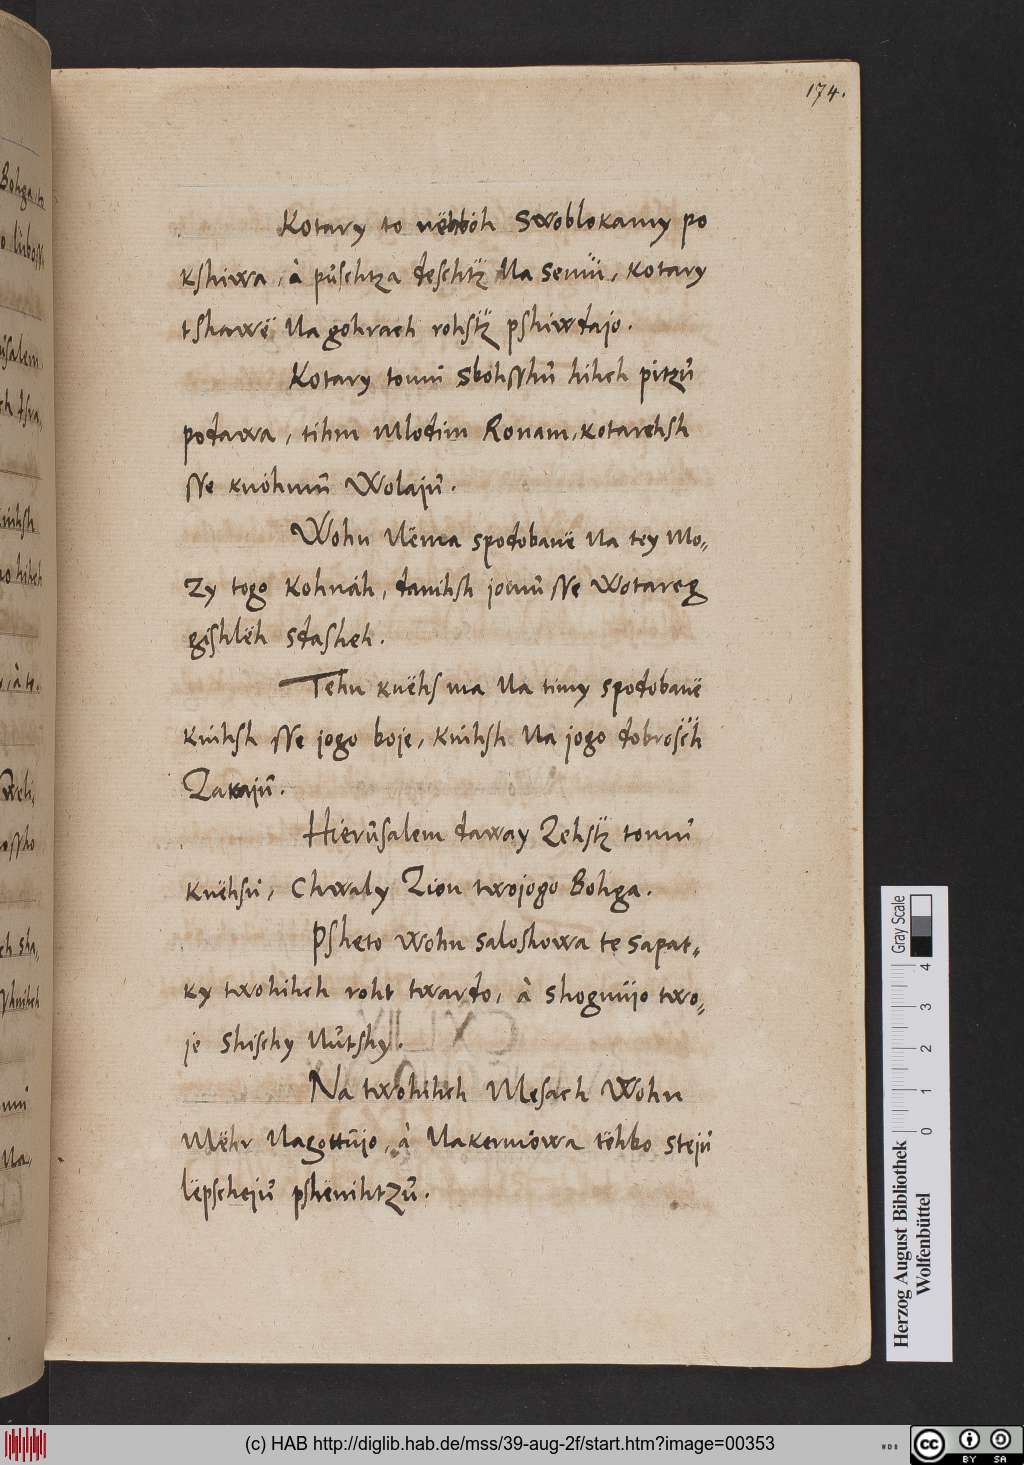 174.
Kotary to nëbböh Swoblokamy po
kshiwa, à půschtza deschtz̈ Na semü, kotary
tshawë Na gohrach rohstz̈ pshiwdajo.
Kotary tomu Sköhsshů hihch pitzů
podawa, tihm Mlodim Ronam, kotarehsh
sse knöhmů Wolajů.
Wohn Nëma spodobanë Na tey Mo„
Zy togo Kohnäh, danihsh jomů sse Wotareg
gishlëh sdasheh.
Tehn knëhs ma Na timy spodobanë
knihsh sse jogo boje, knihsh Na jogo dobrosch
Zakajů.
Hierůsalem daway Zehstz̈ tomů
knëhsu, Chwaly Zion twojogo Bohga.
Psheto wohn saloshowa te sapat„
ky twohihch roht twardo, à shognüjo two„
je Shischy Nůtshy.
Na twohihch Mesach Wohn
Mëhr Nagottůjo, à Nakermöwa tëhbo stejů
lëpschejů pshënihtzů.
Bohga
lůboss
Gray Scale
0 1 2 3 4
Herzog August Bibliothek
Wolfenbüttel
(c) HAB http://diglib.hab.de/mss/39-aug-2f/start.htm?image=00353
WDB
cc BY SA